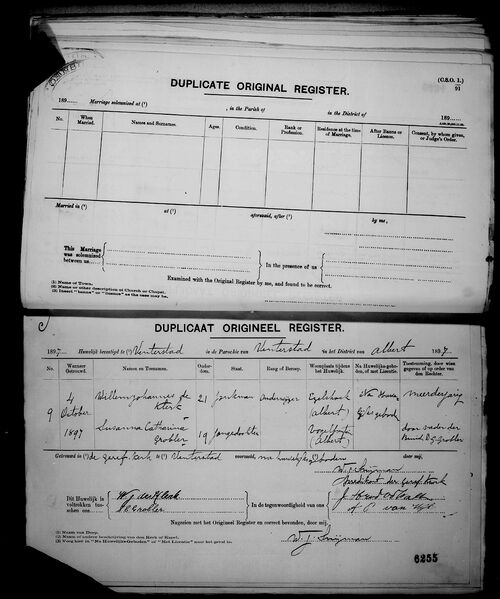 DUPLICATE ORIGINAL REGISTER.
(C.S.O. I.)
91
189...... Marriage solemnized at (¹) , in the Parish of in the District of 189......
No. When Married. Names and Surnames. Ages. Condition. Rank or Profession. Residence at the time of Marriage. After Banns or Licence. Consent, by whom given, or Judge's Order.
Married in (²) at (¹) aforesaid, after (³) by me,
This Marriage was solemnized between us......
In the presence of us
Examined with the Original Register by me, and found to be correct.
(1) Name of Town.
(2) Name or other description of Church or Chapel.
(3) Insert "banns" or "licence" as the case may be.
DUPLICAAT ORIGINEEL REGISTER.
1897 Huwelijk bevestigd te (¹) Venterstad in de Parochie van Venterstad in het District van Albert 1897
No. Wanneer Getrouwd. Namen en Toenamen. Ouderdom. Staat. Rang of Beroep. Woonplaats tijdens het Huwelijk. Na Huweliks-geboden, of met Licentie. Toestemming, door wien gegeven of op order van den Rechter.
9 4 October 1897
Willem Johannes de Klerk 21 jonkman Onderwijzer (Albert) Na Huw. Geboden meerderjarig
Susanna Catharina Grobler 19 jongedochter (Albert) door vader der Bruid, Grobler
Getrouwd in (²) de Geref. Kerk te (¹) Venterstad voormeld, na huwelijksgeboden
W. J. Snijman
Predikant der Geref. Kerk
Dit Huwelijk is voltrokken tusschen ons
W. J. de Klerk
S C Grobler
In de tegenwoordigheid van ons
Nagezien met het Origineel Register en correct bevonden, door mij,
W. J. Snijman
(1) Naam van Dorp.
(2) Naam of andere beschrijving van den Kerk of Kapel.
(3) Voeg hier in "Na Huweliks-Geboden" of "Met Licentie" naar het geval is.
6255